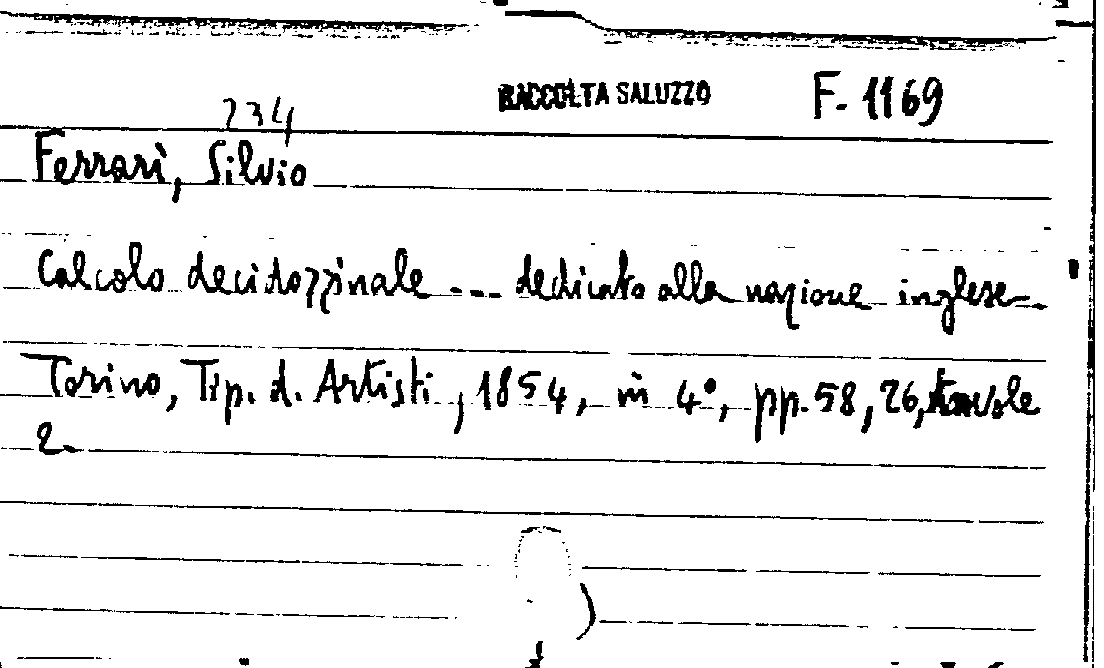 RACCOLTA SALUZZO F. 1169
234
Ferrari, Silvio
Calcolo decidozzinale --- dedicato alla nazione inglese-
Torino, Tip. d. Artisti, 1854, in 4°, pp. 58, 26, tavole
2.